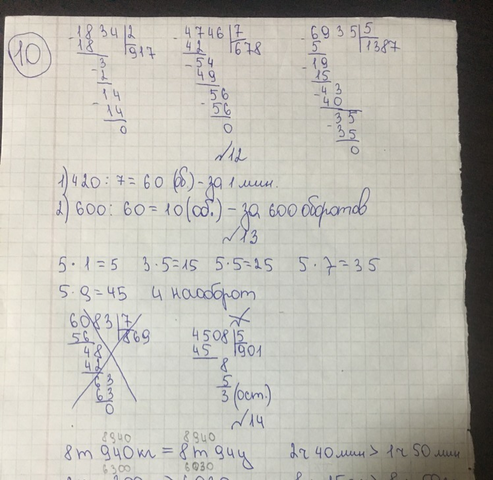 10
-1834|2
18 |917
-3
2
14
-14
0
-4746|7
42 |678
-54
49
56
-56
0
-6935|5
5 |1387
-19
15
-43
40
35
-35
0
№12
1) 420 : 7 = 60 (об) - за 1 мин.
2) 600 : 60 = 10 (об.) - за 600 оборотов
№13
5 · 1 = 5 3 · 5 = 15 5 · 5 = 25 5 · 7 = 35
5 · 9 = 45 и наоборот
6083|7
56 |869
48
42
63
63
0
4508|5
45 |901
8
5
3 (ост.)
№14
8940 8940
8 т 940 кг = 8 т 94 ц 2 ч 40 мин > 1 ч 50 мин
6300 6030